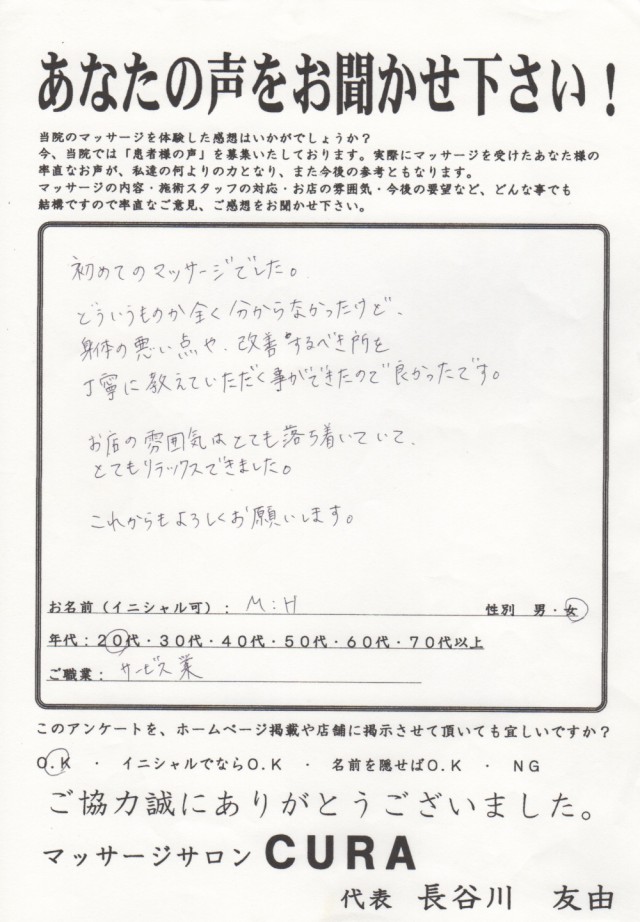 あなたの声をお聞かせ下さい！
当院のマッサージを体験した感想はいかがでしょうか？
今、当院では「患者様の声」を募集いたしております。実際にマッサージを受けたあなた様の
率直なお声が、私達の何よりの力となり、また今後の参考ともなります。
マッサージの内容・施術スタッフの対応・お店の雰囲気・今後の要望など、どんな事でも
結構ですので率直なご意見、ご感想をお聞かせ下さい。
初めてのマッサージでした。
どういうものか全く分からなかったけど、
身体の悪い点や、改善するべき所を
丁寧に教えていただく事ができたので良かったです。
お店の雰囲気はとても落ち着いていて、
とてもリラックスできました。
これからもよろしくお願いします。
お名前（イニシャル可）： M:H 性別 男・女
年代：２０代・３０代・４０代・５０代・６０代・７０代以上
ご職業： サービス業
このアンケートを、ホームページ掲載や店舗に掲示させて頂いても宜しいですか？
Ｏ.Ｋ ・ イニシャルでならＯ.Ｋ ・ 名前を隠せばＯ.Ｋ ・ ＮＧ
ご協力誠にありがとうございました。
マッサージサロン CURA
代表 長谷川 友由